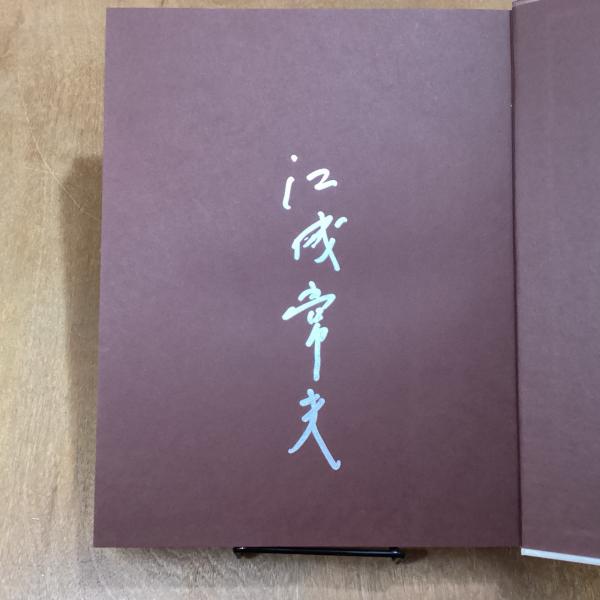 江成常夫